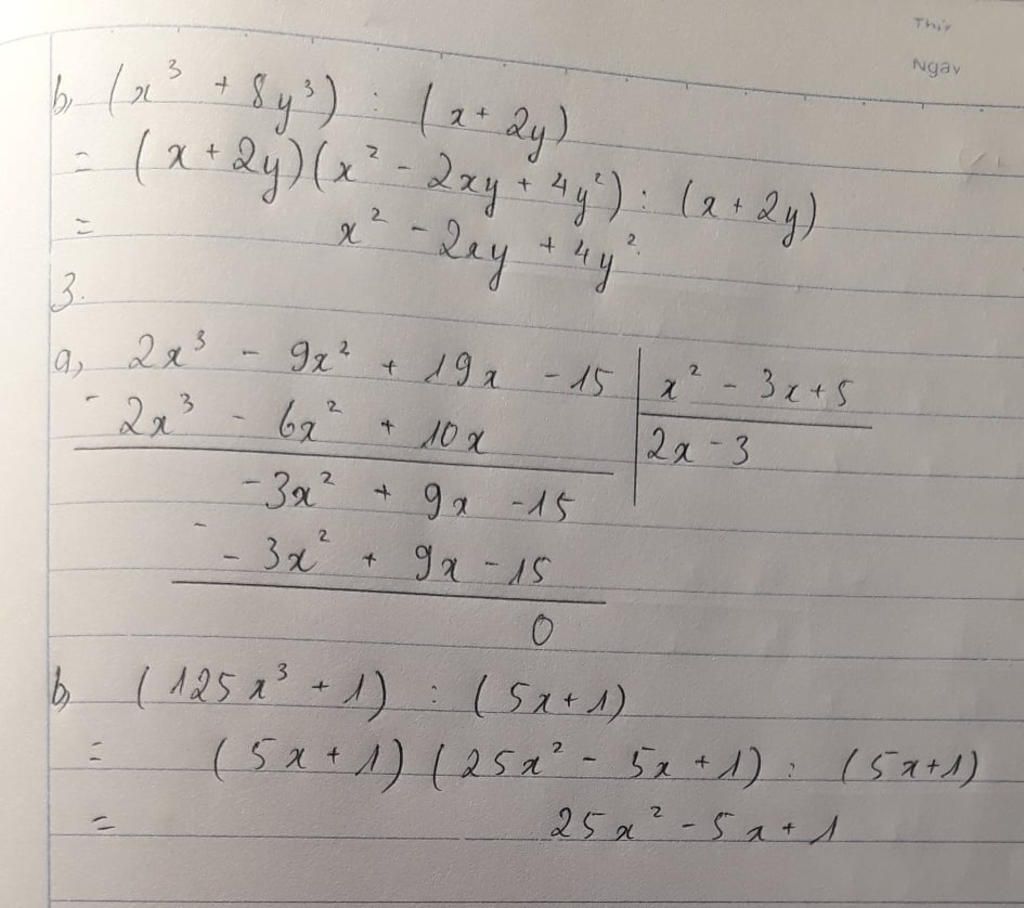 Thứ
Ngày
b, (x³ + 8y³) : (x + 2y)
= (x + 2y)(x² - 2xy + 4y²) : (x + 2y)
= x² - 2xy + 4y²
3.
a, 2x³ - 9x² + 19x - 15 | x² - 3x + 5
- 2x³ - 6x² + 10x | 2x - 3
-3x² + 9x - 15
- -3x² + 9x - 15
0
b, (125x³ + 1) : (5x + 1)
= (5x + 1)(25x² - 5x + 1) : (5x + 1)
= 25x² - 5x + 1